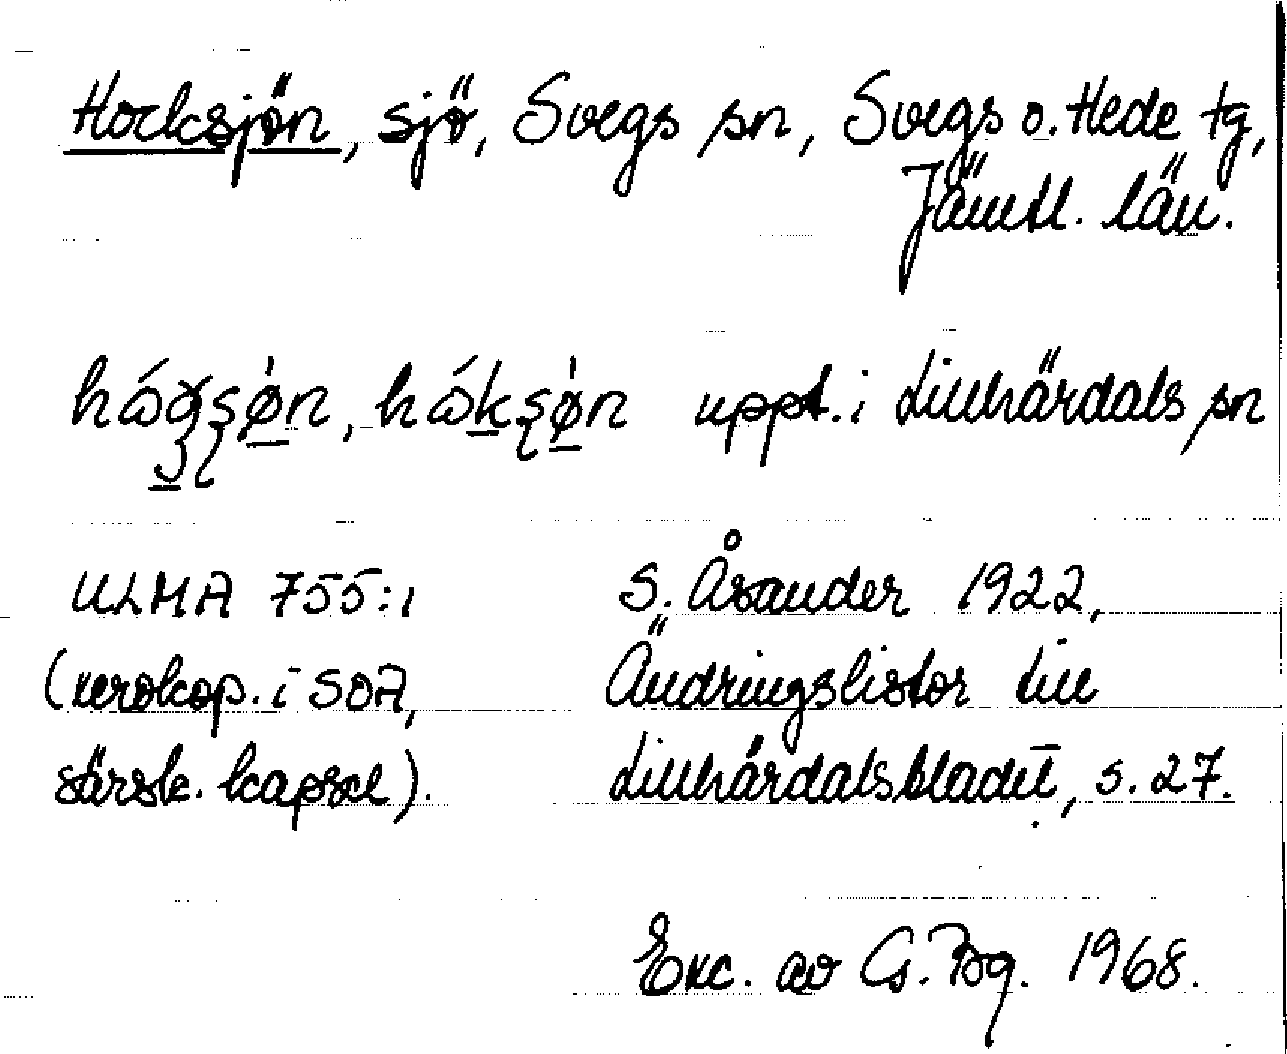 Hocksjön, sjö, Svegs sn, Svegs o. Hede tg,
Jämtl. län.
uppt. i Lillhärdals sn
ULMA 755:1
(xerokop. i SOA,
särsk. kapsel).
S. Åsander 1922,
Ändringslistor till
Lillhärdalsbladet, s. 27.
Exc. av G. Bg. 1968.